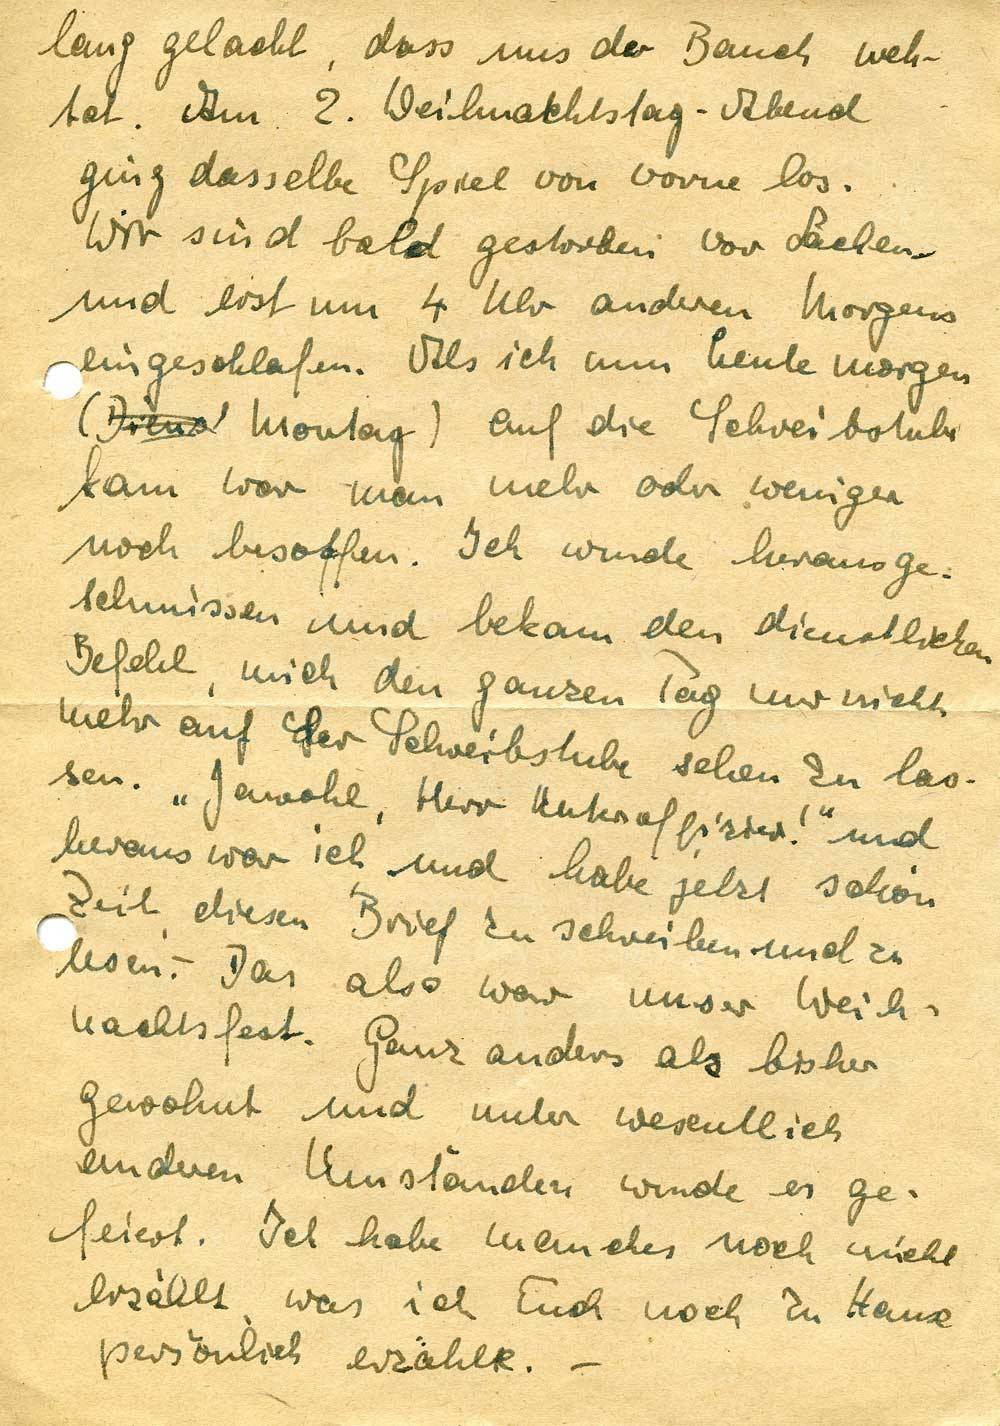 lang gelacht, dass uns der Bauch weh-
tat. Am 2. Weihnachtstag-Abend
ging dasselbe Spiel von vorne los.
Wir sind bald gestorben vor Lachen
und erst um 4 Uhr anderen Morgens
eingeschlafen. Als ich nun heute morgen
(Diens Montag) auf die Schreibstube
kam war man mehr oder weniger
noch besoffen. Ich wurde herausge-
schmissen und bekam den dienstlichen
Befehl, mich den ganzen Tag nur nicht
mehr auf der Schreibstube sehen zu las-
sen. „Jawohl, Herr Unteroffizier!“ und
heraus war ich und habe jetzt schön
Zeit, diesen Brief zu schreiben und zu
lesen.- Das also war unser Weih-
nachtsfest. Ganz anders als bisher
gewohnt und unter wesentlich
anderen Umständen wurde es ge-
feiert. Ich habe manches noch nicht
erzählt, was ich Euch noch zu Hause
persönlich erzähle. –